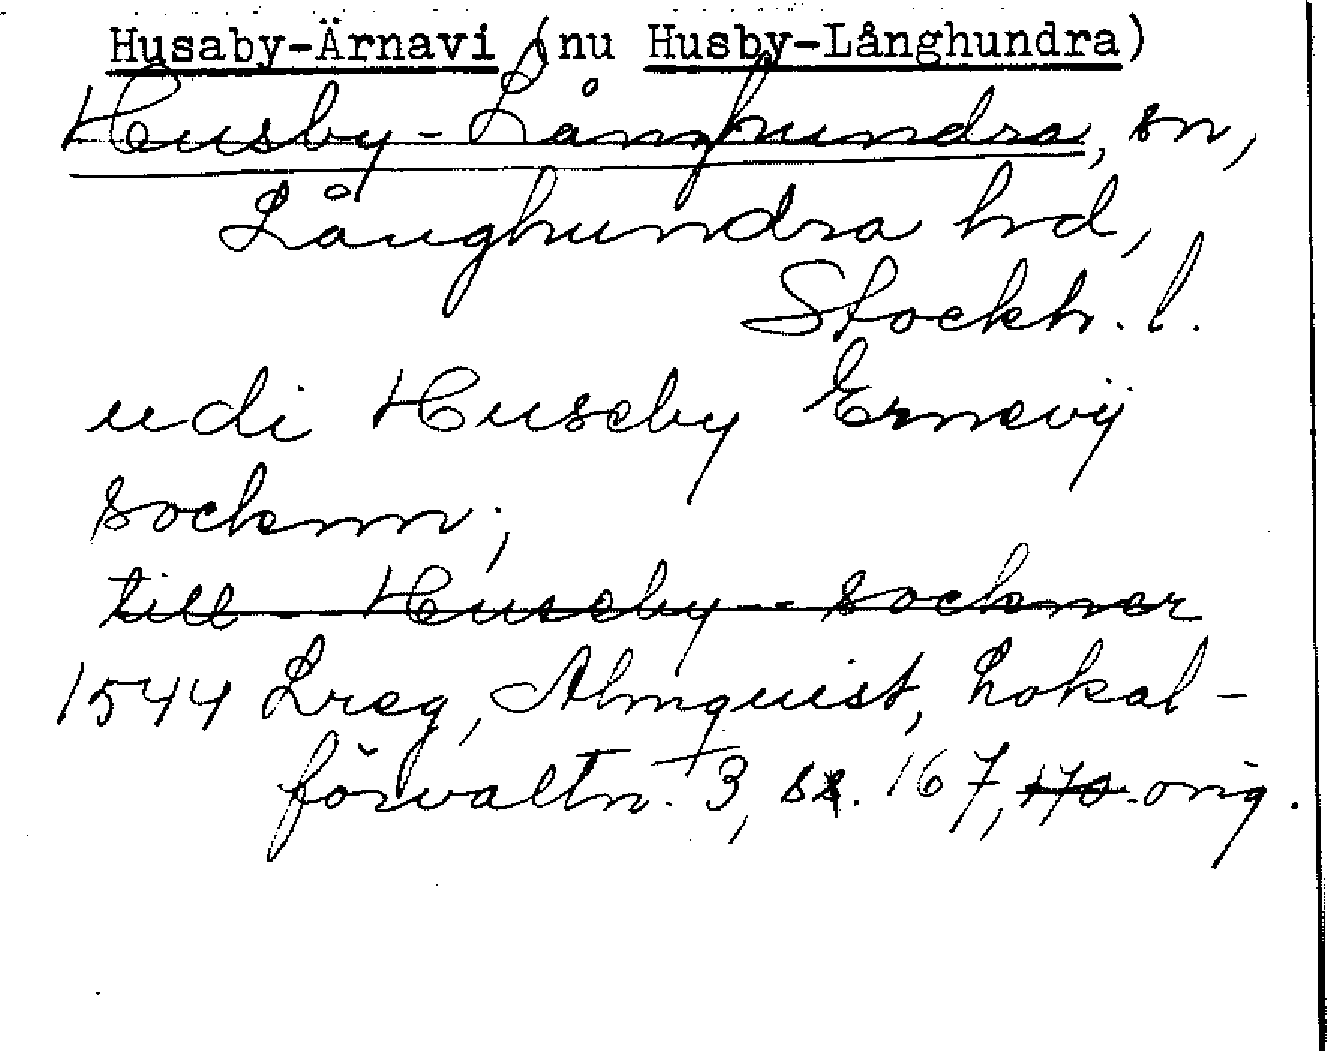 Husaby-Ärnavi (nu Husby-Långhundra)
Husby-Långhundra, sn,
Långhundra hd,
Stockh. l.
udi Huseby Ernevij
socknn;
till Huseby sockner
1544 Lreg, Almquist, Lokal-
förvaltn. 3, s. 167, 170 orig.